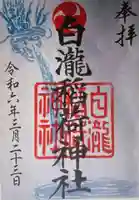 奉拝
白瀧稲荷神社
白瀧
神社
令和六年三月二十三日